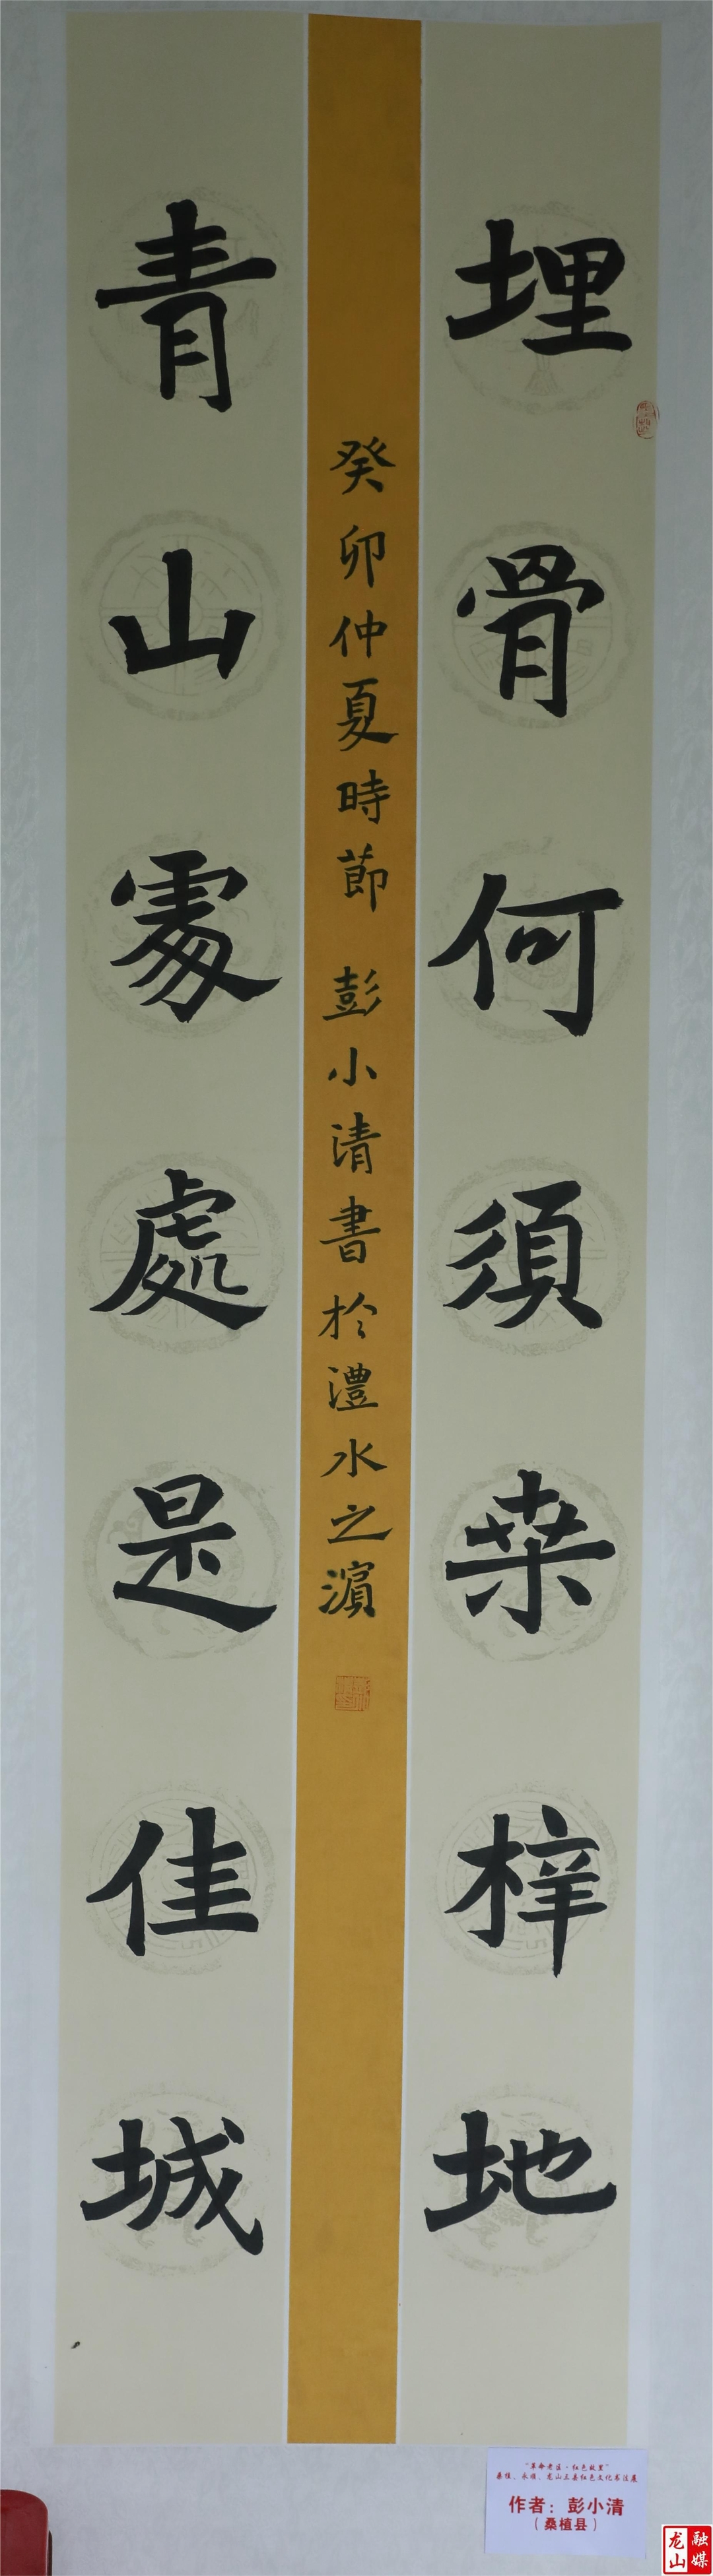 埋骨何須桒梓地
青山處處是佳城
癸卯仲夏時節 彭小清書於澧水之濱
“革命老区·红色故里”
桑植、永顺、龙山三县红色文化书法展
作者：彭小清
（桑植县）
龙山融媒